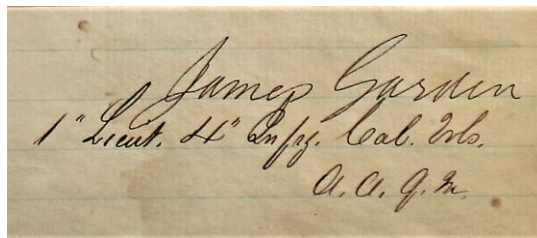 James Garden
1" Lieut. 4" Infy. Cal. Vols.
A. A. Q. M.